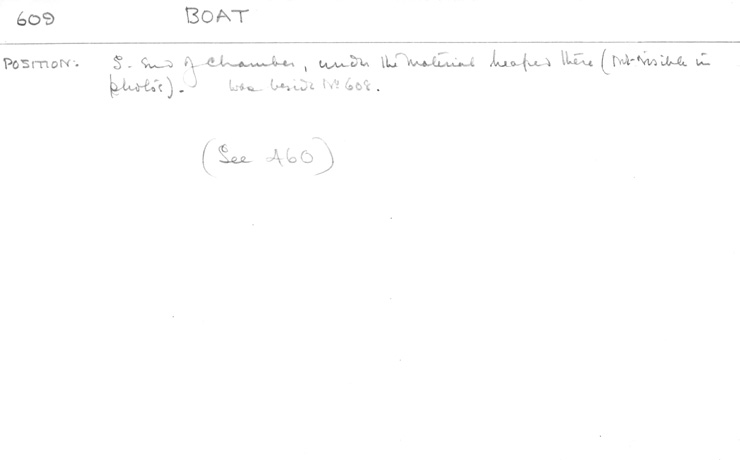 609 BOAT
POSITION. S. end of Chamber, under the material heaped there (not visible in
photos). Was beside No 608.
(See 460)